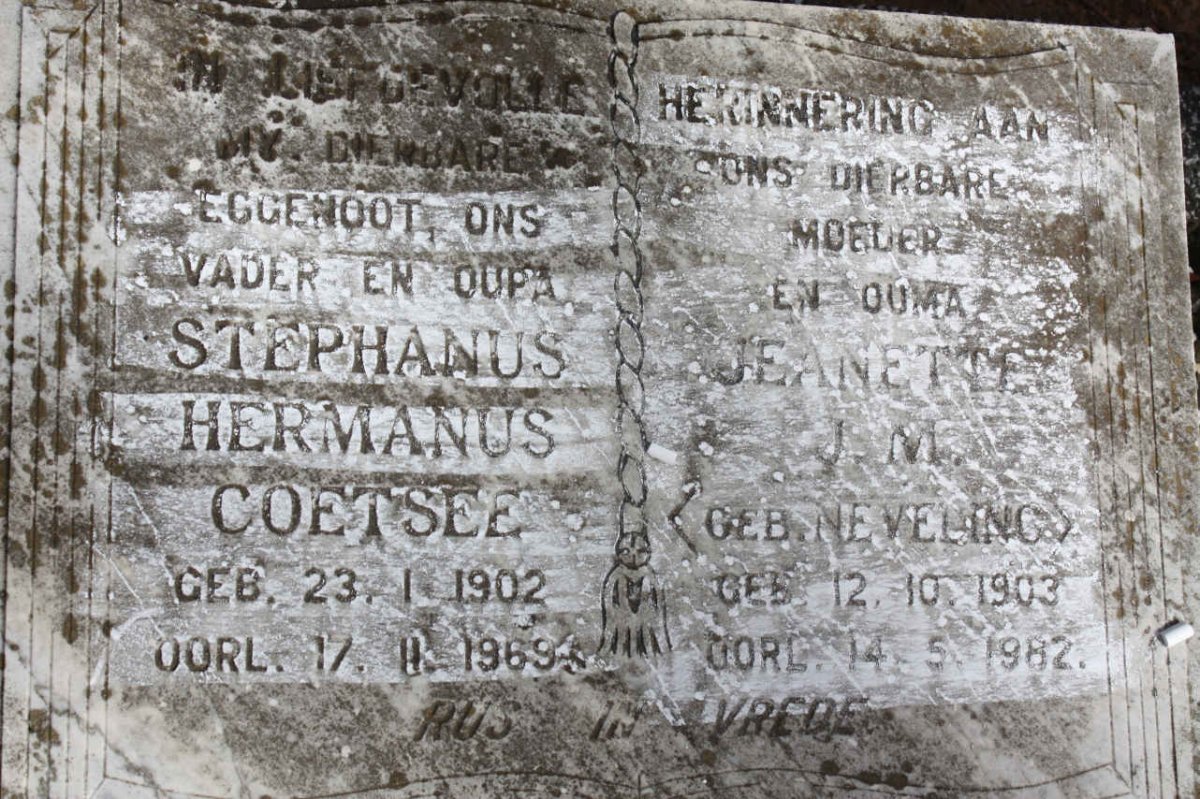 IN LIEFDEVOLLE
HERINNERING AAN
MY DIERBARE
EGGENOOT, ONS
VADER EN OUPA
STEPHANUS
HERMANUS
COETSEE
GEB. 23. 1. 1902
OORL. 17. 11. 1969
ONS DIERBARE
MOEDER
EN OUMA
JEANETTE
J. M.
(GEB. NEVELING)
GEB. 12. 10. 1903
OORL. 14. 5. 1982.
RUS IN VREDE